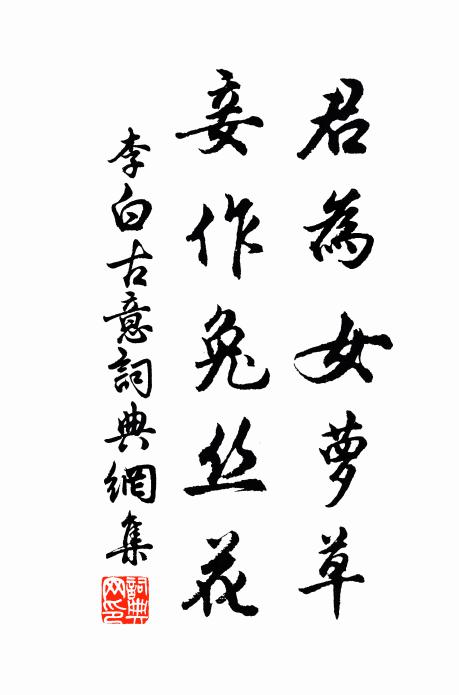 君為女萝草
妾作兔丝花
李白古意詞典網集
詞典網印